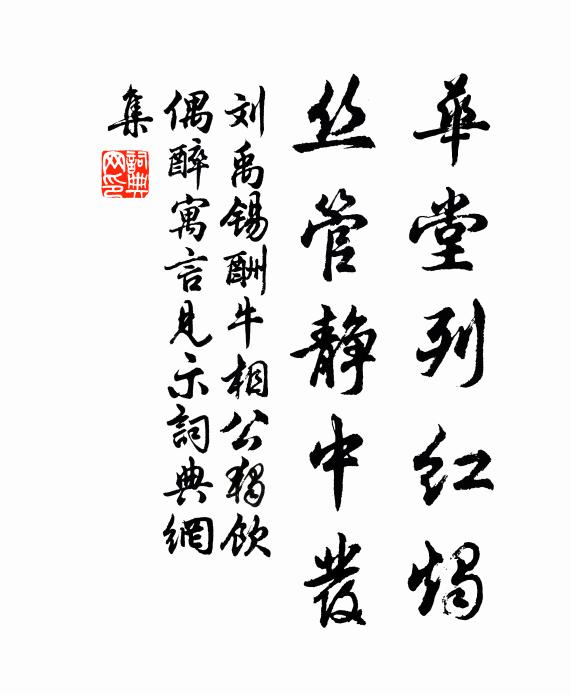 華堂列红燭
丝管静中發
刘禹锡酬牛相公獨飲
偶醉寓言見示詞典網
集
詞典
网印